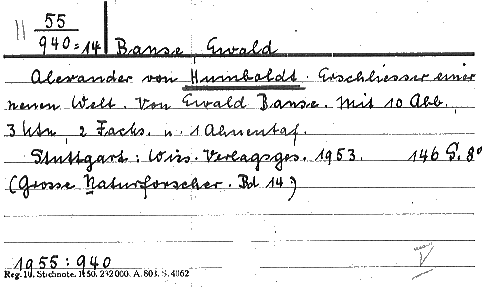 11 55
940=14 Banse Ewald
Alexander von Humboldt. Erschliesser einer
neuen Welt. Von Ewald Banse. Mit 10 Abb.
3 Ktn, 2 Facks. u. 1 Ahnentaf.
Stuttgart: Wiss. Verlagsges. 1953. 146 S. 8°
(Grosse Naturforscher. Bd 14.)
1955:940 V
Reg. 10. Stichnote. 1150. 232000. A. 803. S. 4062